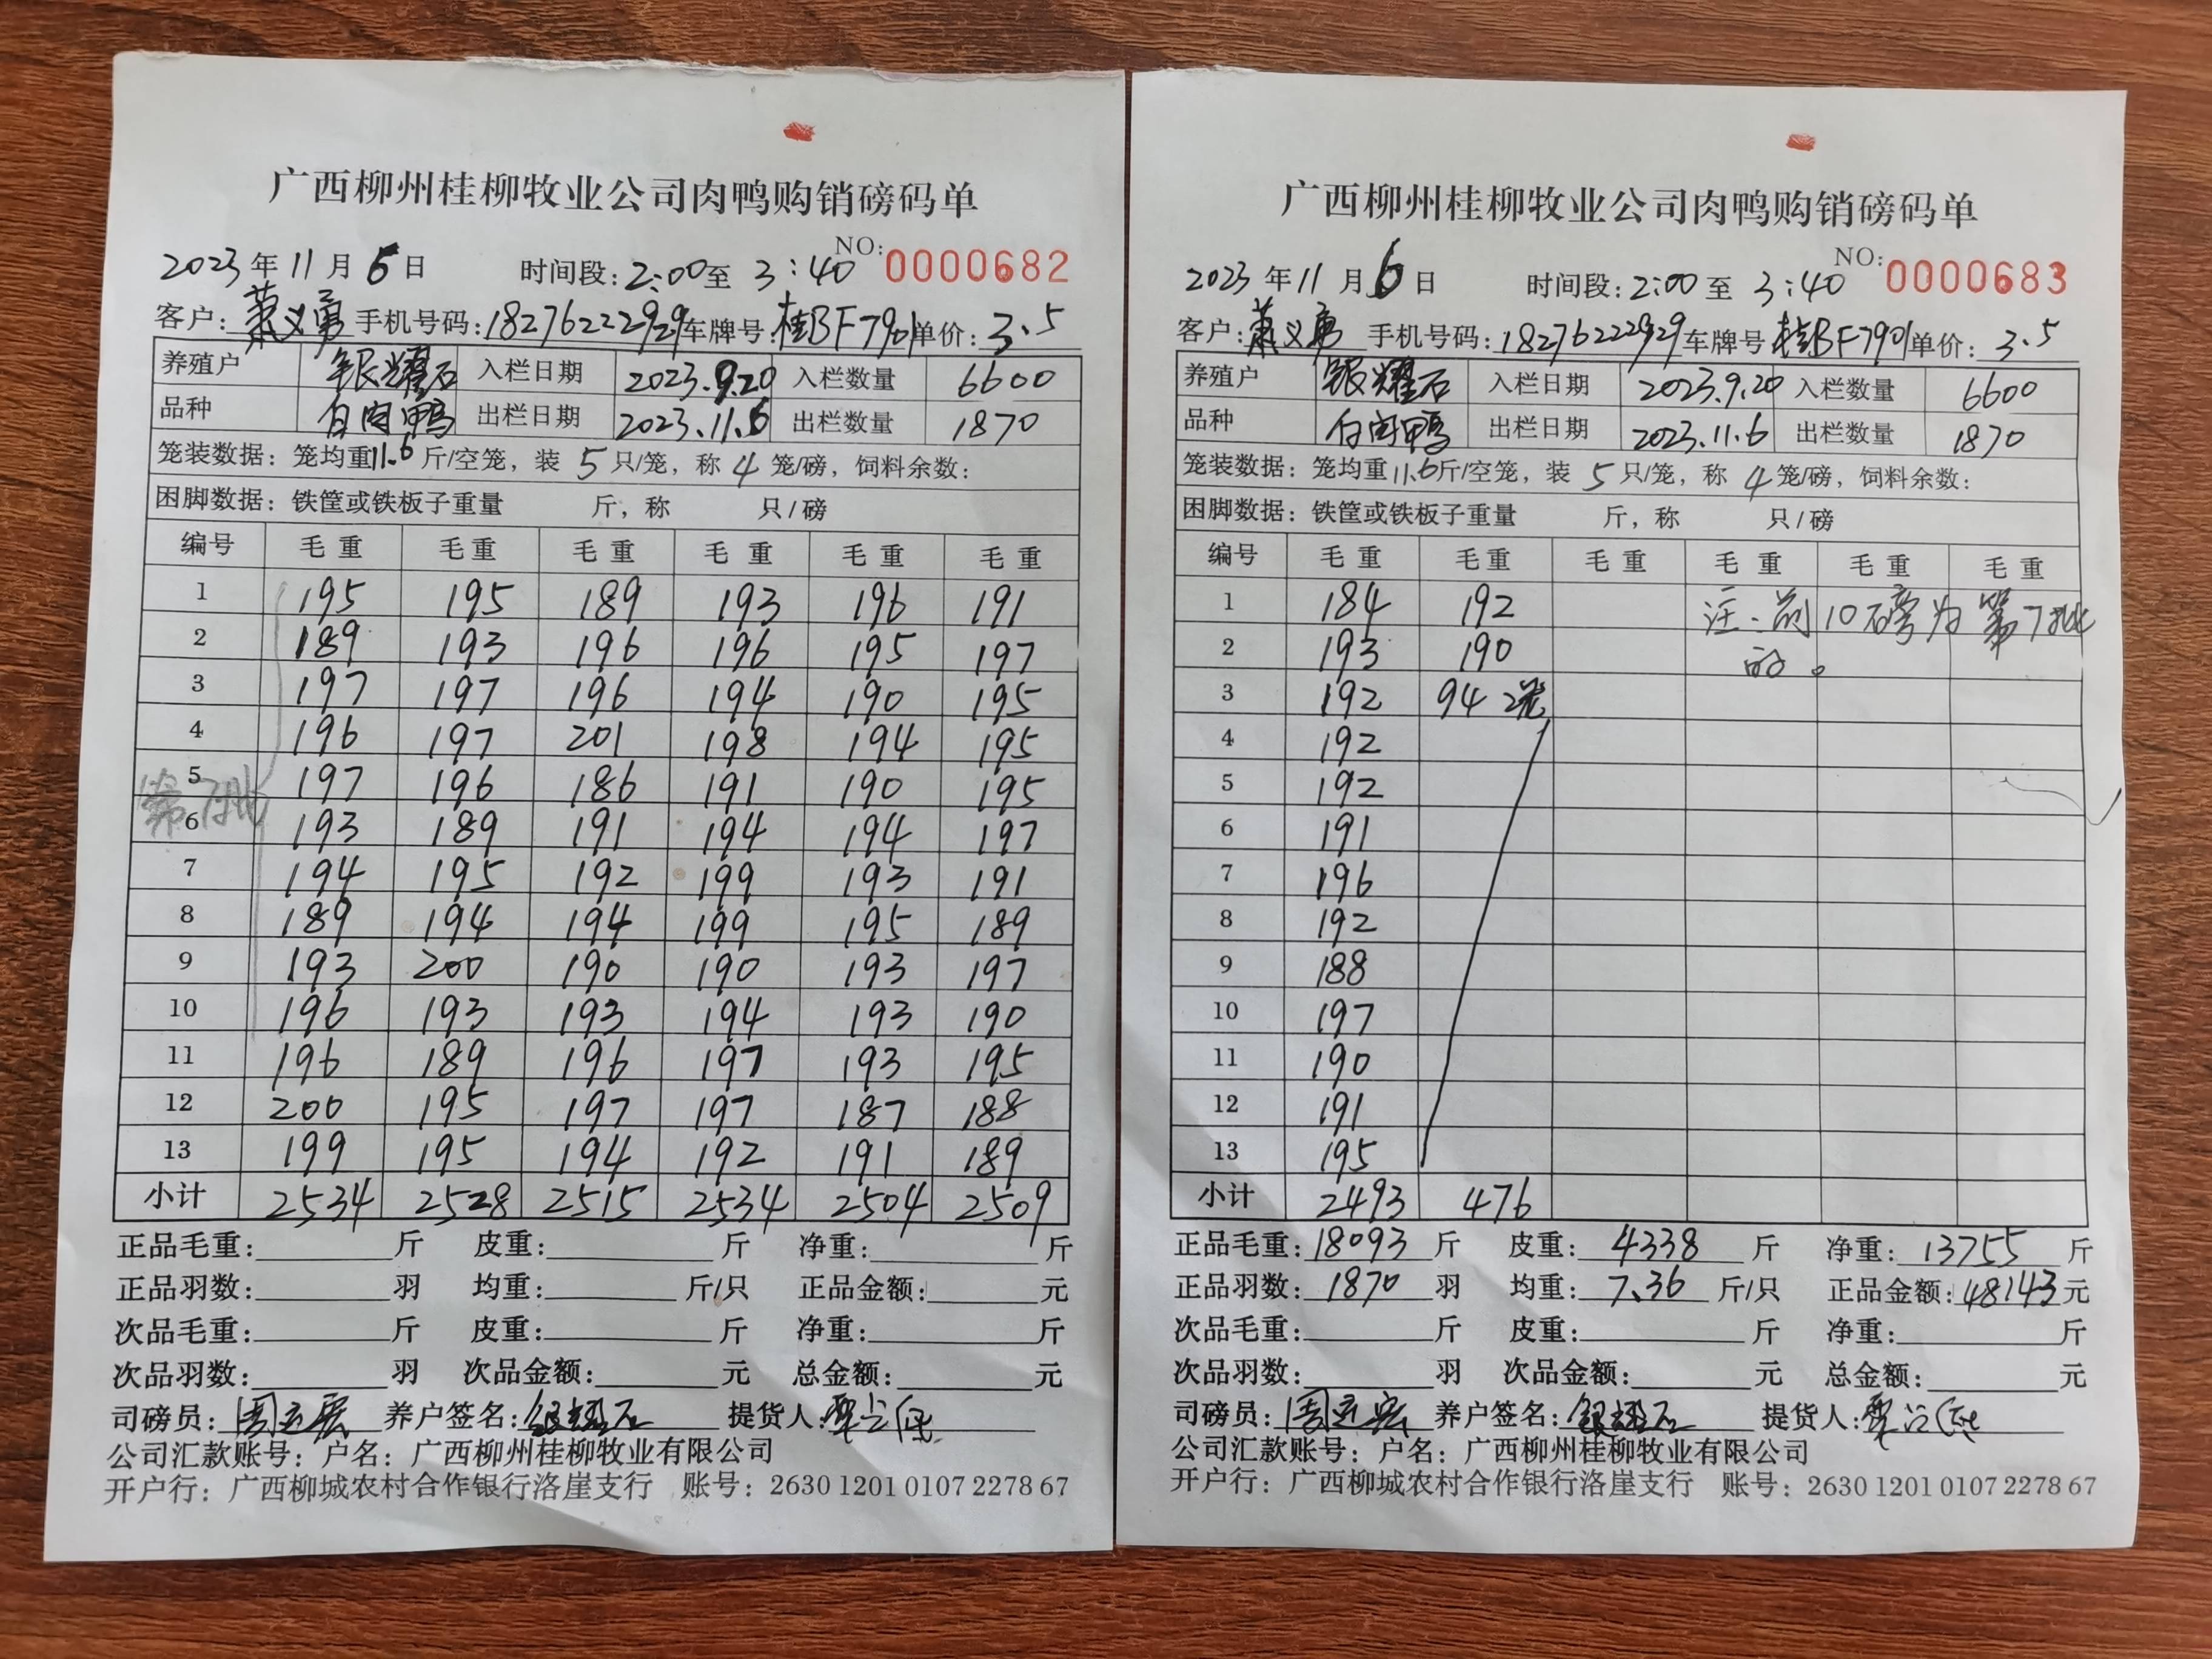 广西柳州桂柳牧业公司肉鸭购销磅码单
NO: 0000682
2023 年 11 月 6 日 时间段: 2:00 至 3:40
客户: 萧义勇 手机号码: 18276222929 车牌号: 桂BF7901 单价: 3.5
养殖户 银耀石 入栏日期 2023.9.20 入栏数量 6600
品种 白肉鸭 出栏日期 2023.11.6 出栏数量 1870
笼装数据: 笼均重 11.6 斤/空笼, 装 5 只/笼, 称 4 笼/磅, 饲料余数:
困脚数据: 铁筐或铁板子重量 斤, 称 只/磅
编号 毛重 毛重 毛重 毛重 毛重 毛重
1 195 195 189 193 196 191
2 189 193 196 196 195 197
3 197 197 196 194 190 195
4 196 197 201 198 194 195
5 197 196 186 191 190 195
第7批
6 193 189 191 194 194 197
7 194 195 192 199 193 191
8 189 194 194 199 195 189
9 193 200 190 190 193 197
10 196 193 193 194 193 190
11 196 189 196 197 193 195
12 200 195 197 197 187 188
13 199 195 194 192 191 189
小计 2534 2528 2515 2534 2504 2509
正品毛重: 斤 皮重: 斤 净重: 斤
正品羽数: 羽 均重: 斤/只 正品金额: 元
次品毛重: 斤 皮重: 斤 净重: 斤
次品羽数: 羽 次品金额: 元 总金额: 元
司磅员: 养户签名: 银耀石 提货人:
公司汇款账号: 户名: 广西柳州桂柳牧业有限公司
开户行: 广西柳城农村合作银行洛崖支行 账号: 2630 1201 0107 2278 67
广西柳州桂柳牧业公司肉鸭购销磅码单
NO: 0000683
2023 年 11 月 6 日 时间段: 2:00 至 3:40
客户: 萧义勇 手机号码: 18276222929 车牌号 桂BF7901 单价: 3.5
养殖户 银耀石 入栏日期 2023.9.20 入栏数量 6600
品种 白肉鸭 出栏日期 2023.11.6 出栏数量 1870
笼装数据: 笼均重 11.6 斤/空笼, 装 5 只/笼, 称 4 笼/磅, 饲料余数:
困脚数据: 铁筐或铁板子重量 斤, 称 只/磅
编号 毛重 毛重 毛重 毛重 毛重 毛重
1 184 192 注:前10磅为第7批
2 193 190 的。
3 192 94 2笼
4 192
5 192
6 191
7 196
8 192
9 188
10 197
11 190
12 191
13 195
小计 2493 476
正品毛重: 18093 斤 皮重: 4338 斤 净重: 13755 斤
正品羽数: 1870 羽 均重: 7.36 斤/只 正品金额: 48143 元
次品毛重: 斤 皮重: 斤 净重: 斤
次品羽数: 羽 次品金额: 元 总金额: 元
司磅员: 养户签名: 银耀石 提货人:
公司汇款账号: 户名: 广西柳州桂柳牧业有限公司
开户行: 广西柳城农村合作银行洛崖支行 账号: 2630 1201 0107 2278 67